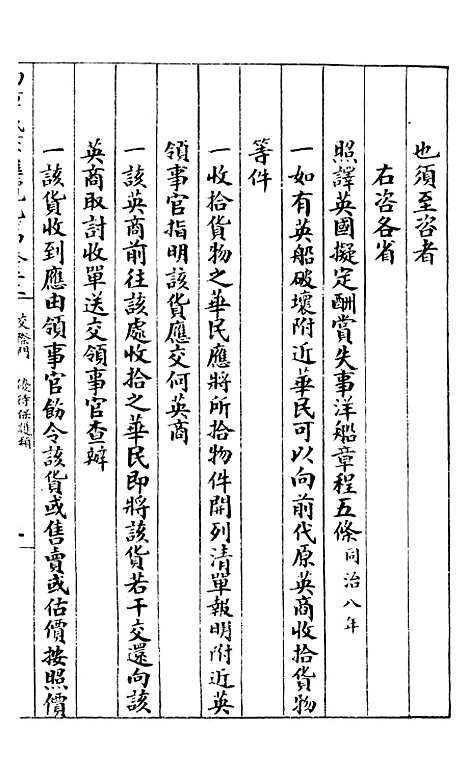 也須至咨者
右咨各省
照譯英國擬定酬賞失事洋船章程五條同治八年
一如有英船破壞附近華民可以向前代原英商收拾貨物
等件
一收拾貨物之華民應將所拾物件開列清單報明附近英
領事官指明該貨應交何英商
一該英商前往該處收拾之華民即將該貨若干交還向該
英商取討收單送交領事官查辦
一該貨收到應由領事官飭令該貨或售賣或估價按照價
交際門 優待保護類